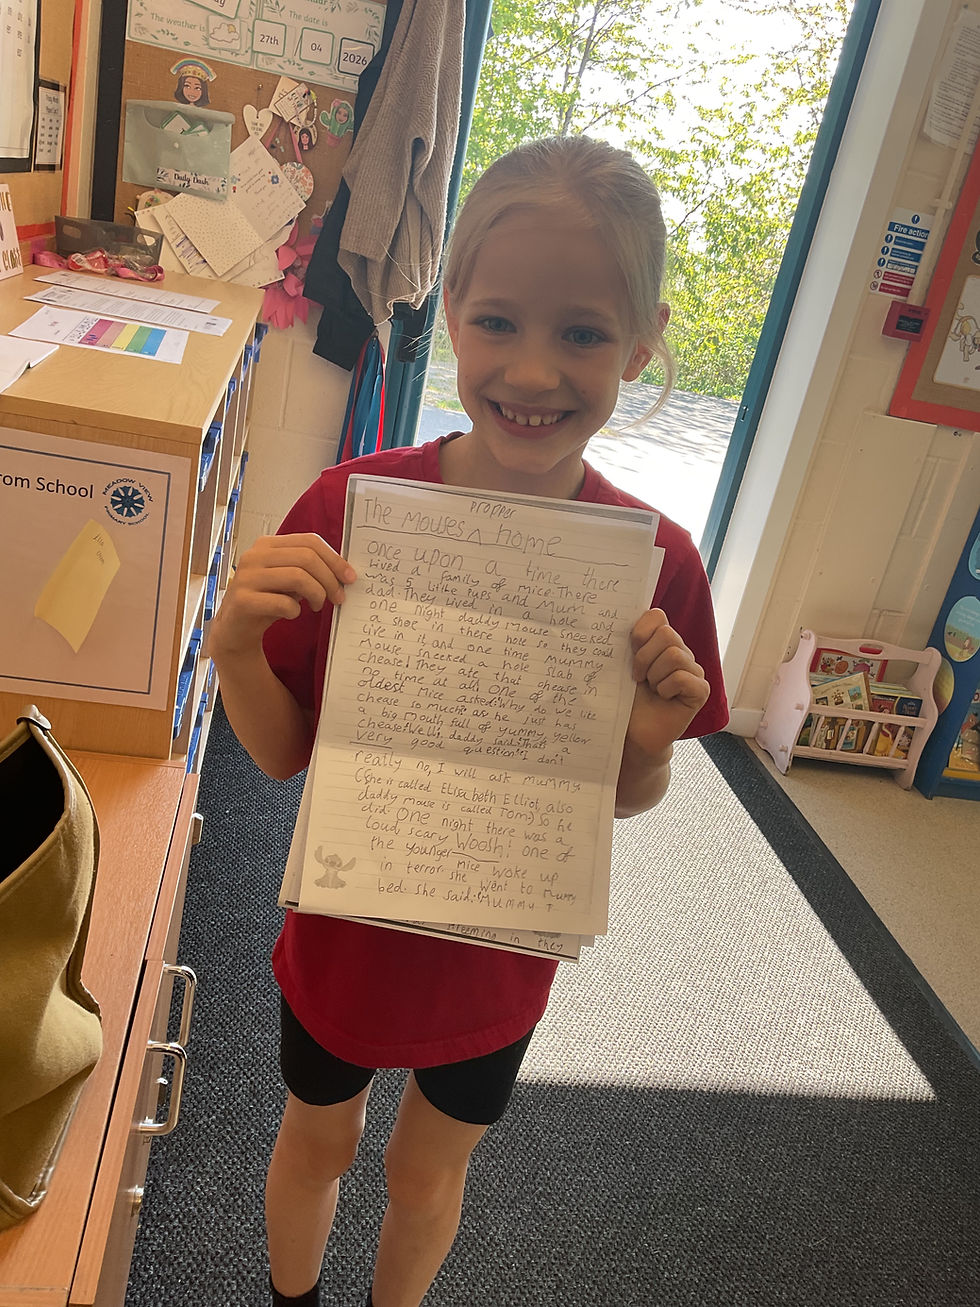 The weather is
The date is
27th
04
2026
Daily Dash
Fire action
rom School
MEADOW VIEW
PRIMARY SCHOOL
propper
The Mouses ^ home
once upon a time there
lived a family of mice. There
was 5 little pups and Mum and
dad. They lived in a hole and
one night daddy mouse sneeked
a shoe in there hole so they could
live in it and one time mummy
mouse sneeked a hole slab of
chease! They ate that chease in
no time at all. one of the
oldest mice asked: why do we like
chease so much? as he just has
a big mouth full of yummy, yellow
chease. Well, daddy said: Thats a
very good question. I don't
really no, I will ask mummy
(she is called Elisabeth Elliot, also
daddy mouse is called Tom.) so he
did. One night there was a
loud scary Woosh! one of
the younger mice woke up
in terror. she went to mummy
bed. she said: "Mummy I
in they